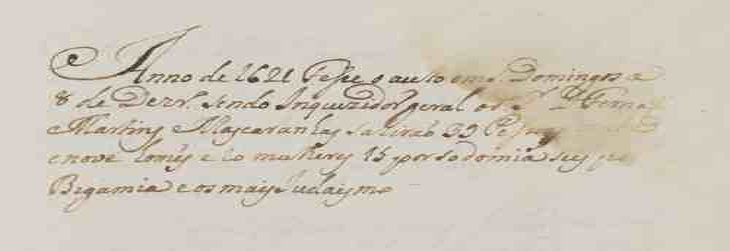 Anno de 1621 Fesse o auto em s. Domingos a
8 de Dezr. sendo Inquizidor geral o s. D. Ferna
Martins Mascaranhas sairaõ 39 Pess
e nove homẽs e 10 mulheres 15 por sodomia seis po
Bigamia e os mais Judaismo